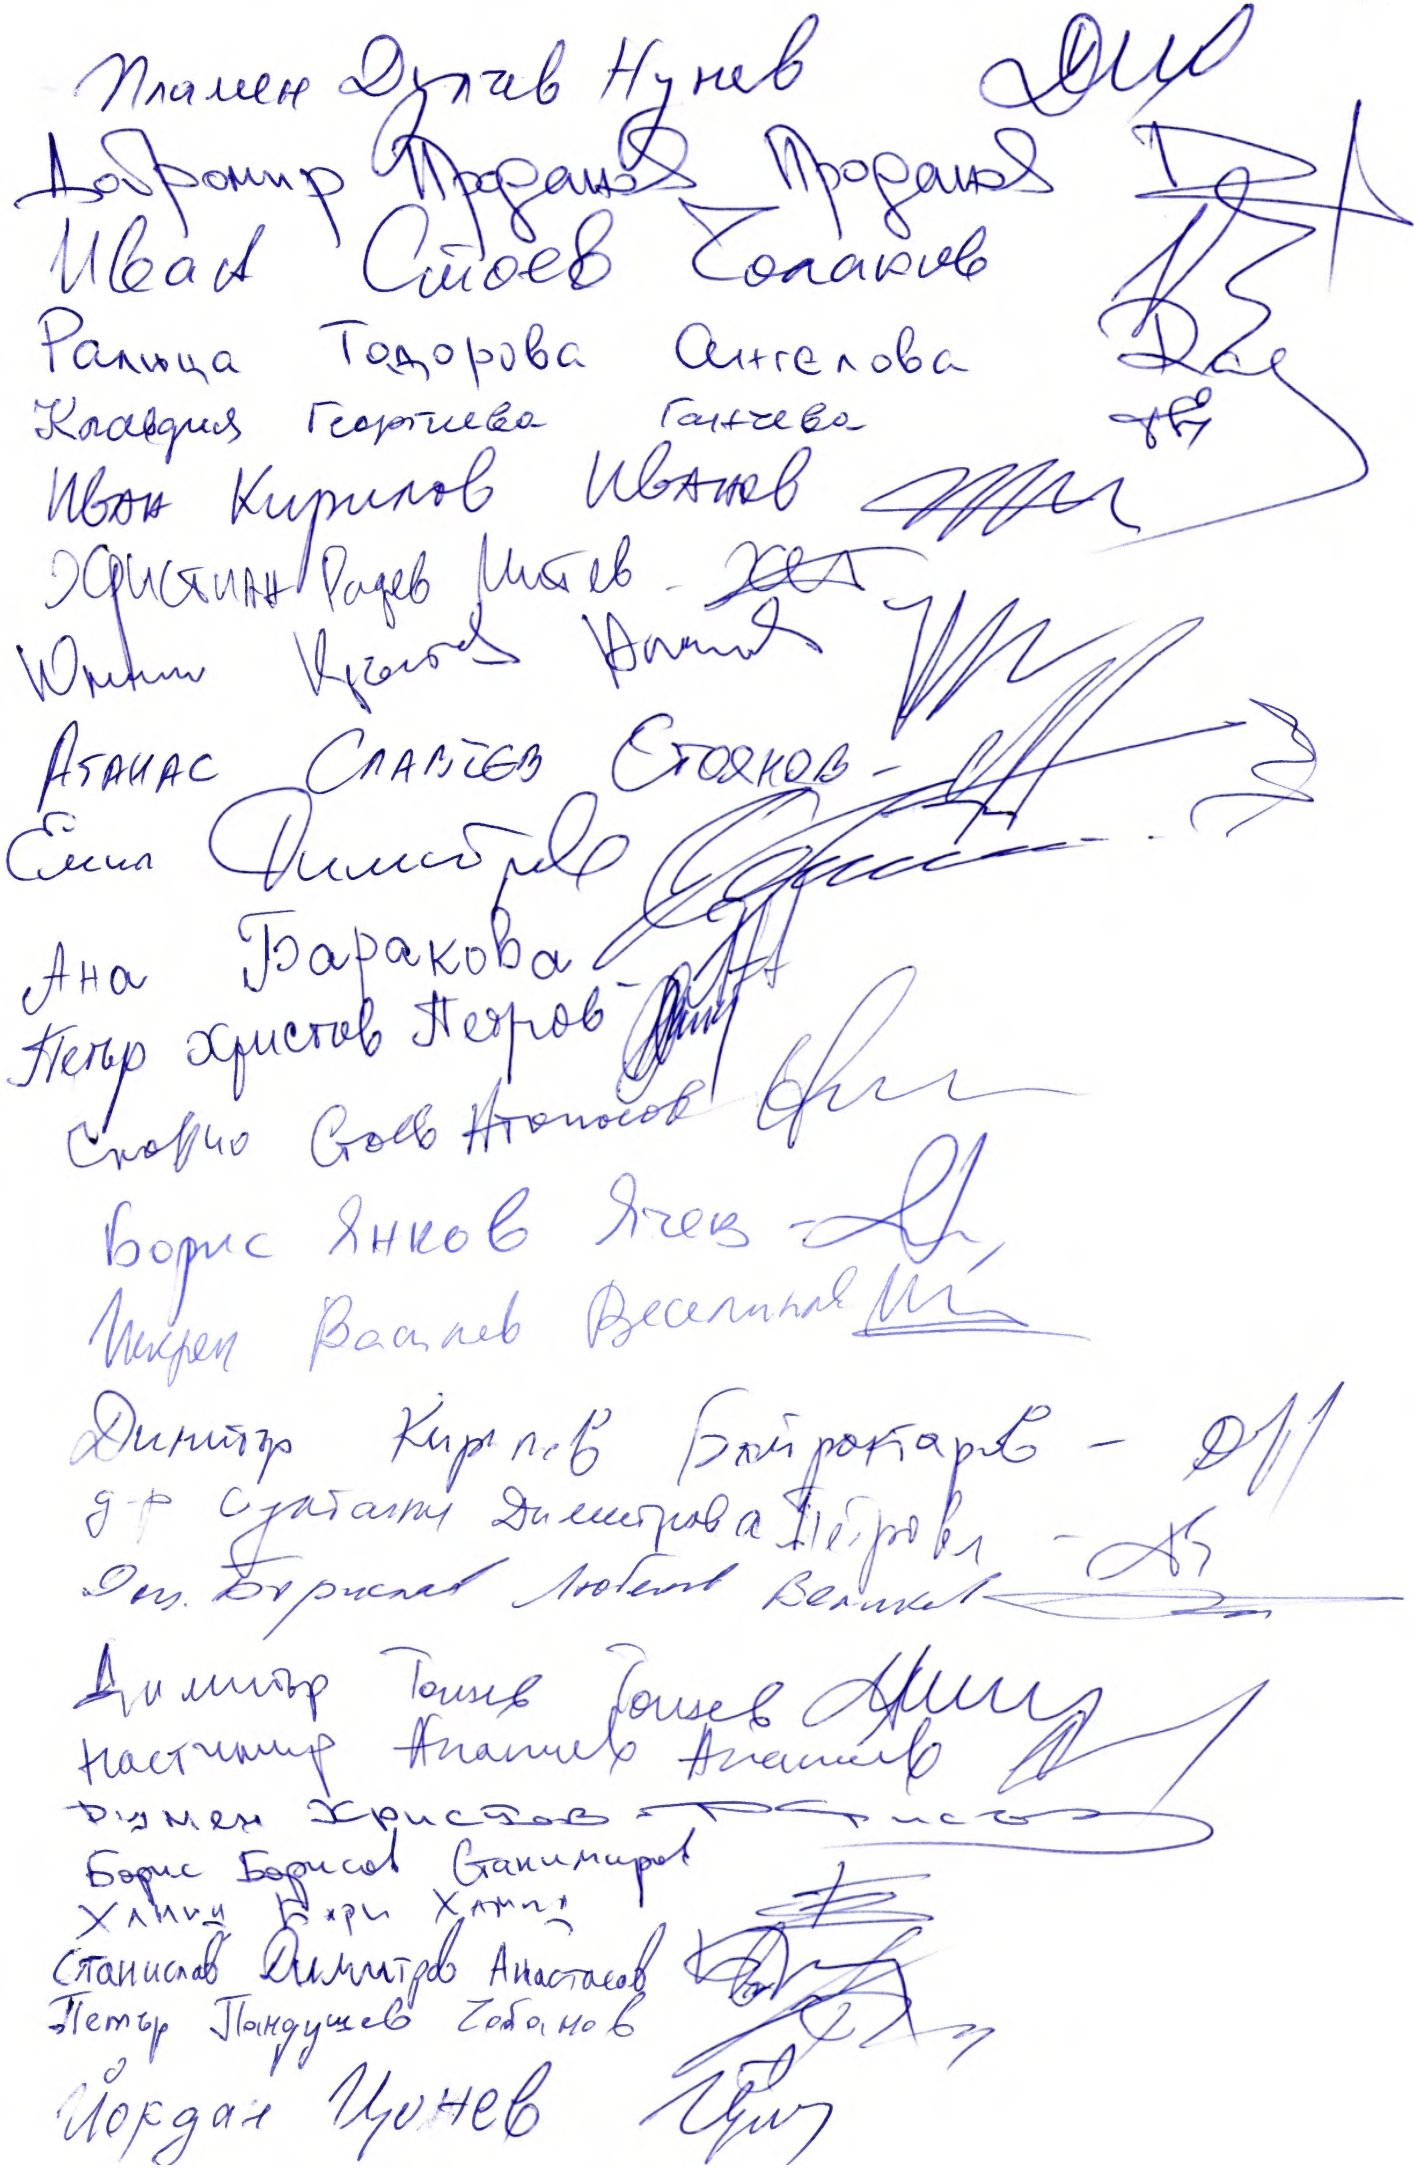 Пламен Дулчев Нунев
Добромир Проданов Проданов
Иван Стоев Чолаков
Ралица Тодорова Ангелова
Клавдия Георгиева Ганчева
Иван Кирилов Иванов
Християн Радев Митев -
Юлиан Кръстев Ангелов
Атанас Славчев Стоянов -
Емил Димитров
Ана Баракова -
Петър Христов Петров -
Славчо Стоев Атанасов
Борис Янков Ячев -
Искрен Василев Веселинов
Димитър Кирилов Байрактаров -
д-р Султанка Димитрова Петрова -
Доц. Борислав Любенов Великов
Димитър Гошев
Настимир Ананиев Ананиев
Румен Христов
Борис Борисов Станимиров
Хамид Бари Хамид
Станислав Димитров Анастасов
Петър Пандушев Чобанов
Йордан Цонев